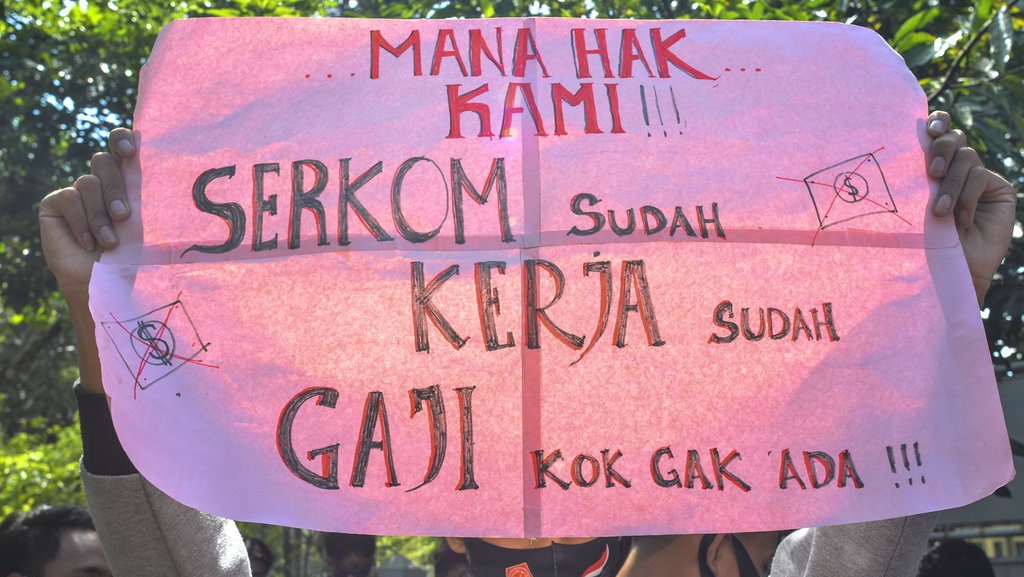 ...MANA HAK...
KAMI!!!
SERKOM SUDAH
KERJA SUDAH
GAJI KOK GAK ADA !!!